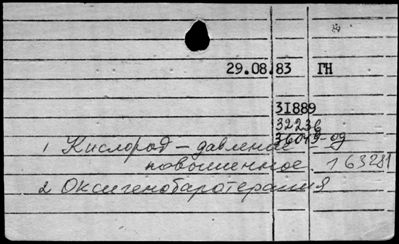 29.08.83 ГН
31889
32236
36049-од
1 Кислород – давление
повышенное 163281
2 Оксигенобаротерапия